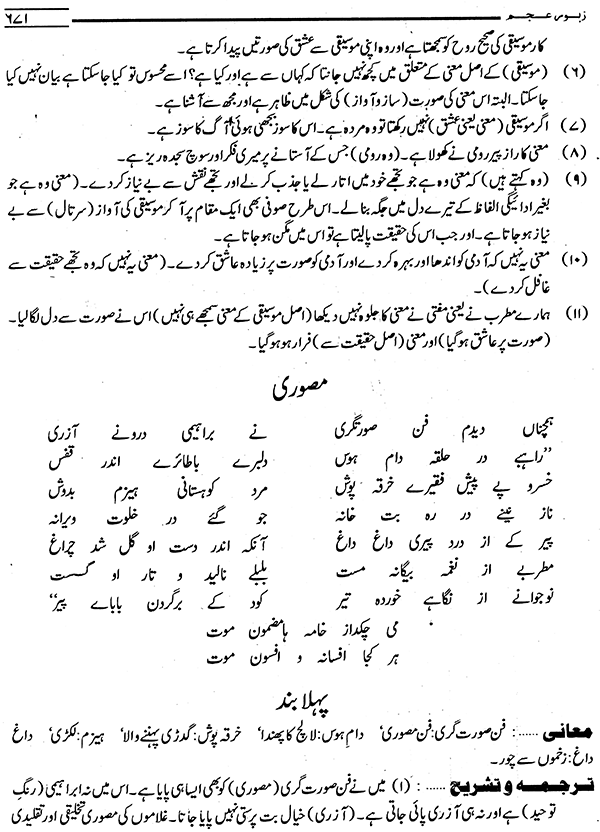 زبور عجم
۶۷۱
کار موسیقی کی صحیح روح کو سمجھتا ہے اور وہ اپنی موسیقی سے عشق کی صورتیں پیدا کرتا ہے۔
(۶) (موسیقی) کے اصل معنی کے متعلق میں کچھ نہیں جانتا کہ کہاں سے ہے اور کیا ہے؟ اسے محسوس تو کیا جا سکتا ہے بیان نہیں کیا
جا سکتا۔ البتہ اس معنی کی صورت (ساز و آواز) کی شکل میں ظاہر ہے اور مجھ سے آشنا ہے۔
(۷) اگر موسیقی (معنی یعنی عشق) نہیں رکھتا تو وہ مردہ ہے۔ اس کا سوز بجھی ہوئی آگ کا سوز ہے۔
(۸) معنی کا راز پیر رومی نے کھولا ہے۔ (وہ رومی) جس کے آستانے پر میری فکر اور سوچ سجدہ ریز ہے۔
(۹) (وہ کہتے ہیں) کہ معنی وہ ہے جو تجھے خود میں اتار لے یا جذب کر لے اور تجھے نقش سے بے نیاز کر دے۔ (معنی وہ ہے جو
بغیر ادائیگی الفاظ کے تیرے دل میں جگہ بنا لے۔ اس طرح صوفی بھی ایک مقام پر آ کر موسیقی کی آواز (سر تال) سے بے
نیاز ہو جاتا ہے۔ اور جب اس کی حقیقت پا لیتا ہے تو اس میں مگن ہو جاتا ہے۔
(۱۰) معنی یہ نہیں کہ آدمی کو اندھا اور بہرہ کر دے اور آدمی کو صورت پر زیادہ عاشق کر دے۔ (معنی یہ نہیں کہ وہ تجھے حقیقت سے
غافل کر دے)۔
(۱۱) ہمارے مطرب نے یعنی مغنی نے معنی کا جلوہ نہیں دیکھا (اصل موسیقی کے معنی سمجھے ہی نہیں) اس نے صورت سے دل لگا لیا۔
(صورت پر عاشق ہو گیا) اور معنی (اصل حقیقت سے) فرار ہو ہو گیا۔
مصوری
ہمچناں دیدم فن صورتگری نے براہیمی درونے آزری
”راہبے در حلقہ دام ہوس دلبرے باطائرے اندر قفس
خسرو پے پیش فقیرے خرقہ پوش مرد کوہستانی ہیزم بدوش
نازنینے در رہ بت خانہ جو گئے در خلوت ویرانہ
پیر کے از درد پیری داغ داغ آنکہ اندر دست او گل شد چراغ
مطربے از نغمہ بیگانہ مست بلبلے نالید و تار او گست
نوجوانے از نگاہے خوردہ تیر کود کے بر گردن بابائے پیر“
می چکد از خامہ ہا مضمون موت
ہر کجا افسانہ و افسون موت
پہلا بند
معانی ..... : فن صورت گری: فن مصوری‘ دامِ ہوس: لالچ کا پھندا‘ خرقہ پوش: گدڑی پہننے والا‘ ہیزم: لکڑی‘ داغ
داغ: زخموں سے چور۔
ترجمہ و تشریح ..... : (۱) میں نے فن صورت گری (مصوری) کو بھی ایسا ہی پایا ہے۔ اس میں نہ ابراہیمی (رنگِ
توحید) ہے اور نہ ہی آزری پائی جاتی ہے۔ (آزری) خیال بت پرستی نہیں پایا جاتا۔ غلاموں کی مصوری تخلیقی اور تقلیدی